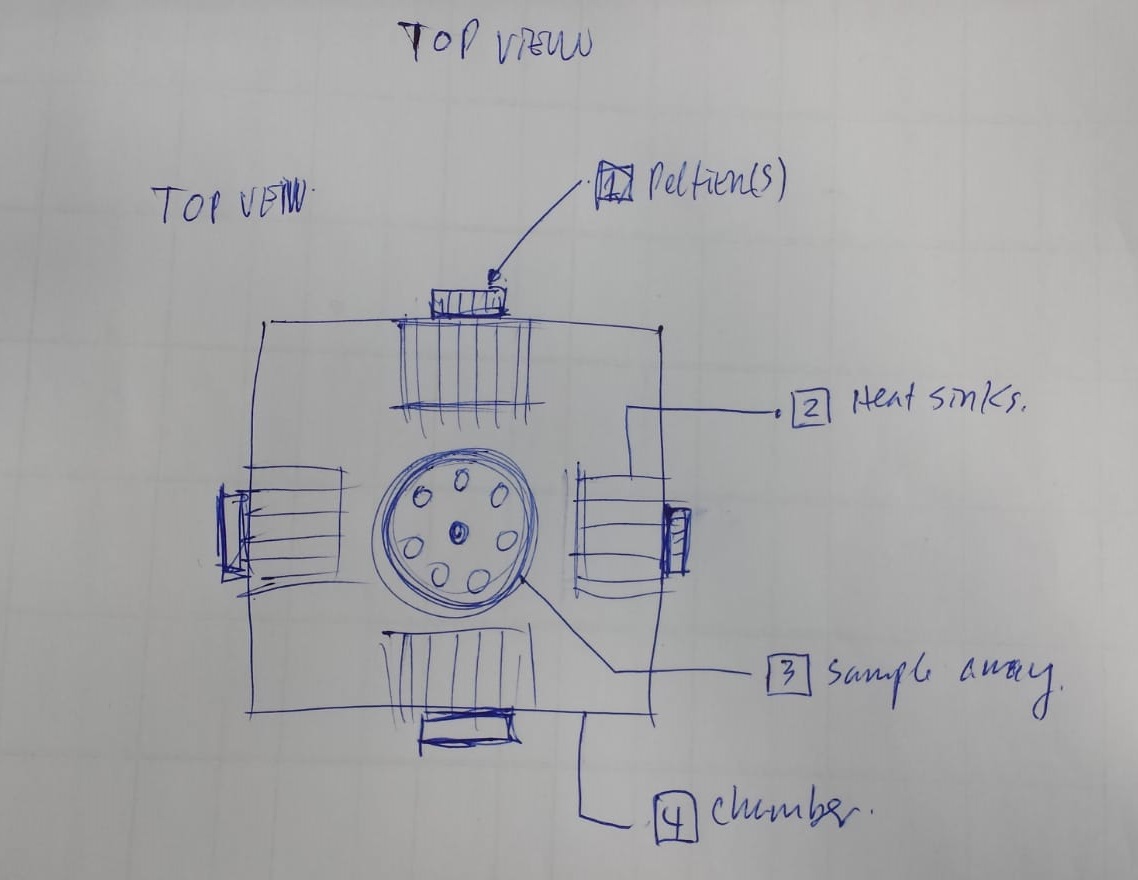 TOP VIEW
TOP VEIW
1 Peltier(s)
2 Heat sinks.
3 Sample array.
4 chamber.